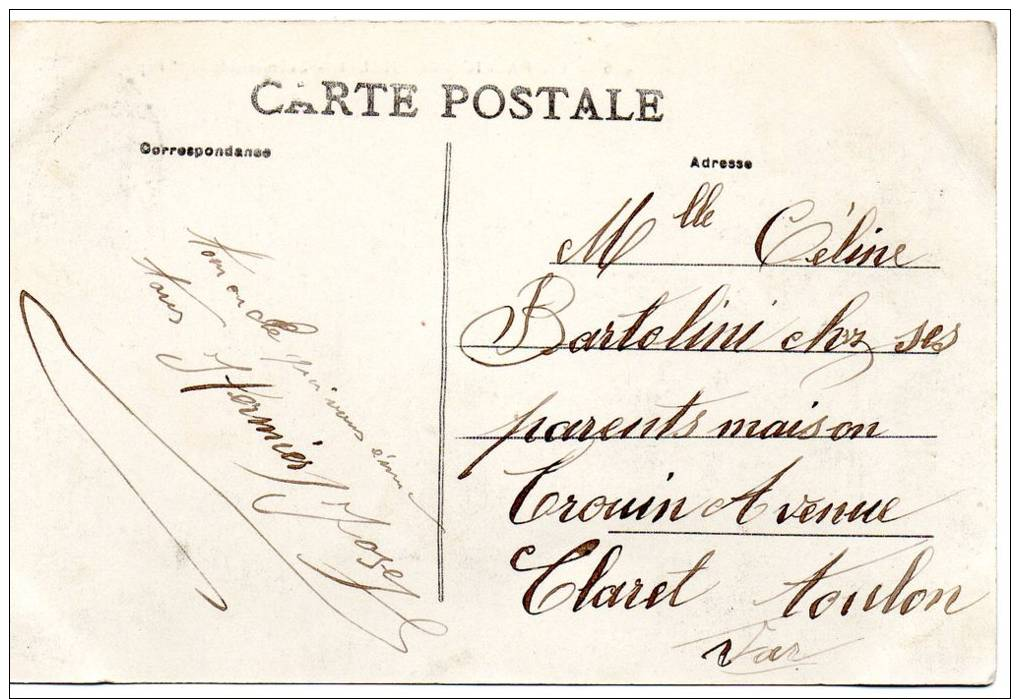 CARTE POSTALE
Correspondance
ton oncle qui vous aime
tous
Hermies Josef
Adresse
Mlle Céline
Bartolini chz ses
parents maison
Trouin Avenue
Claret toulon
Var